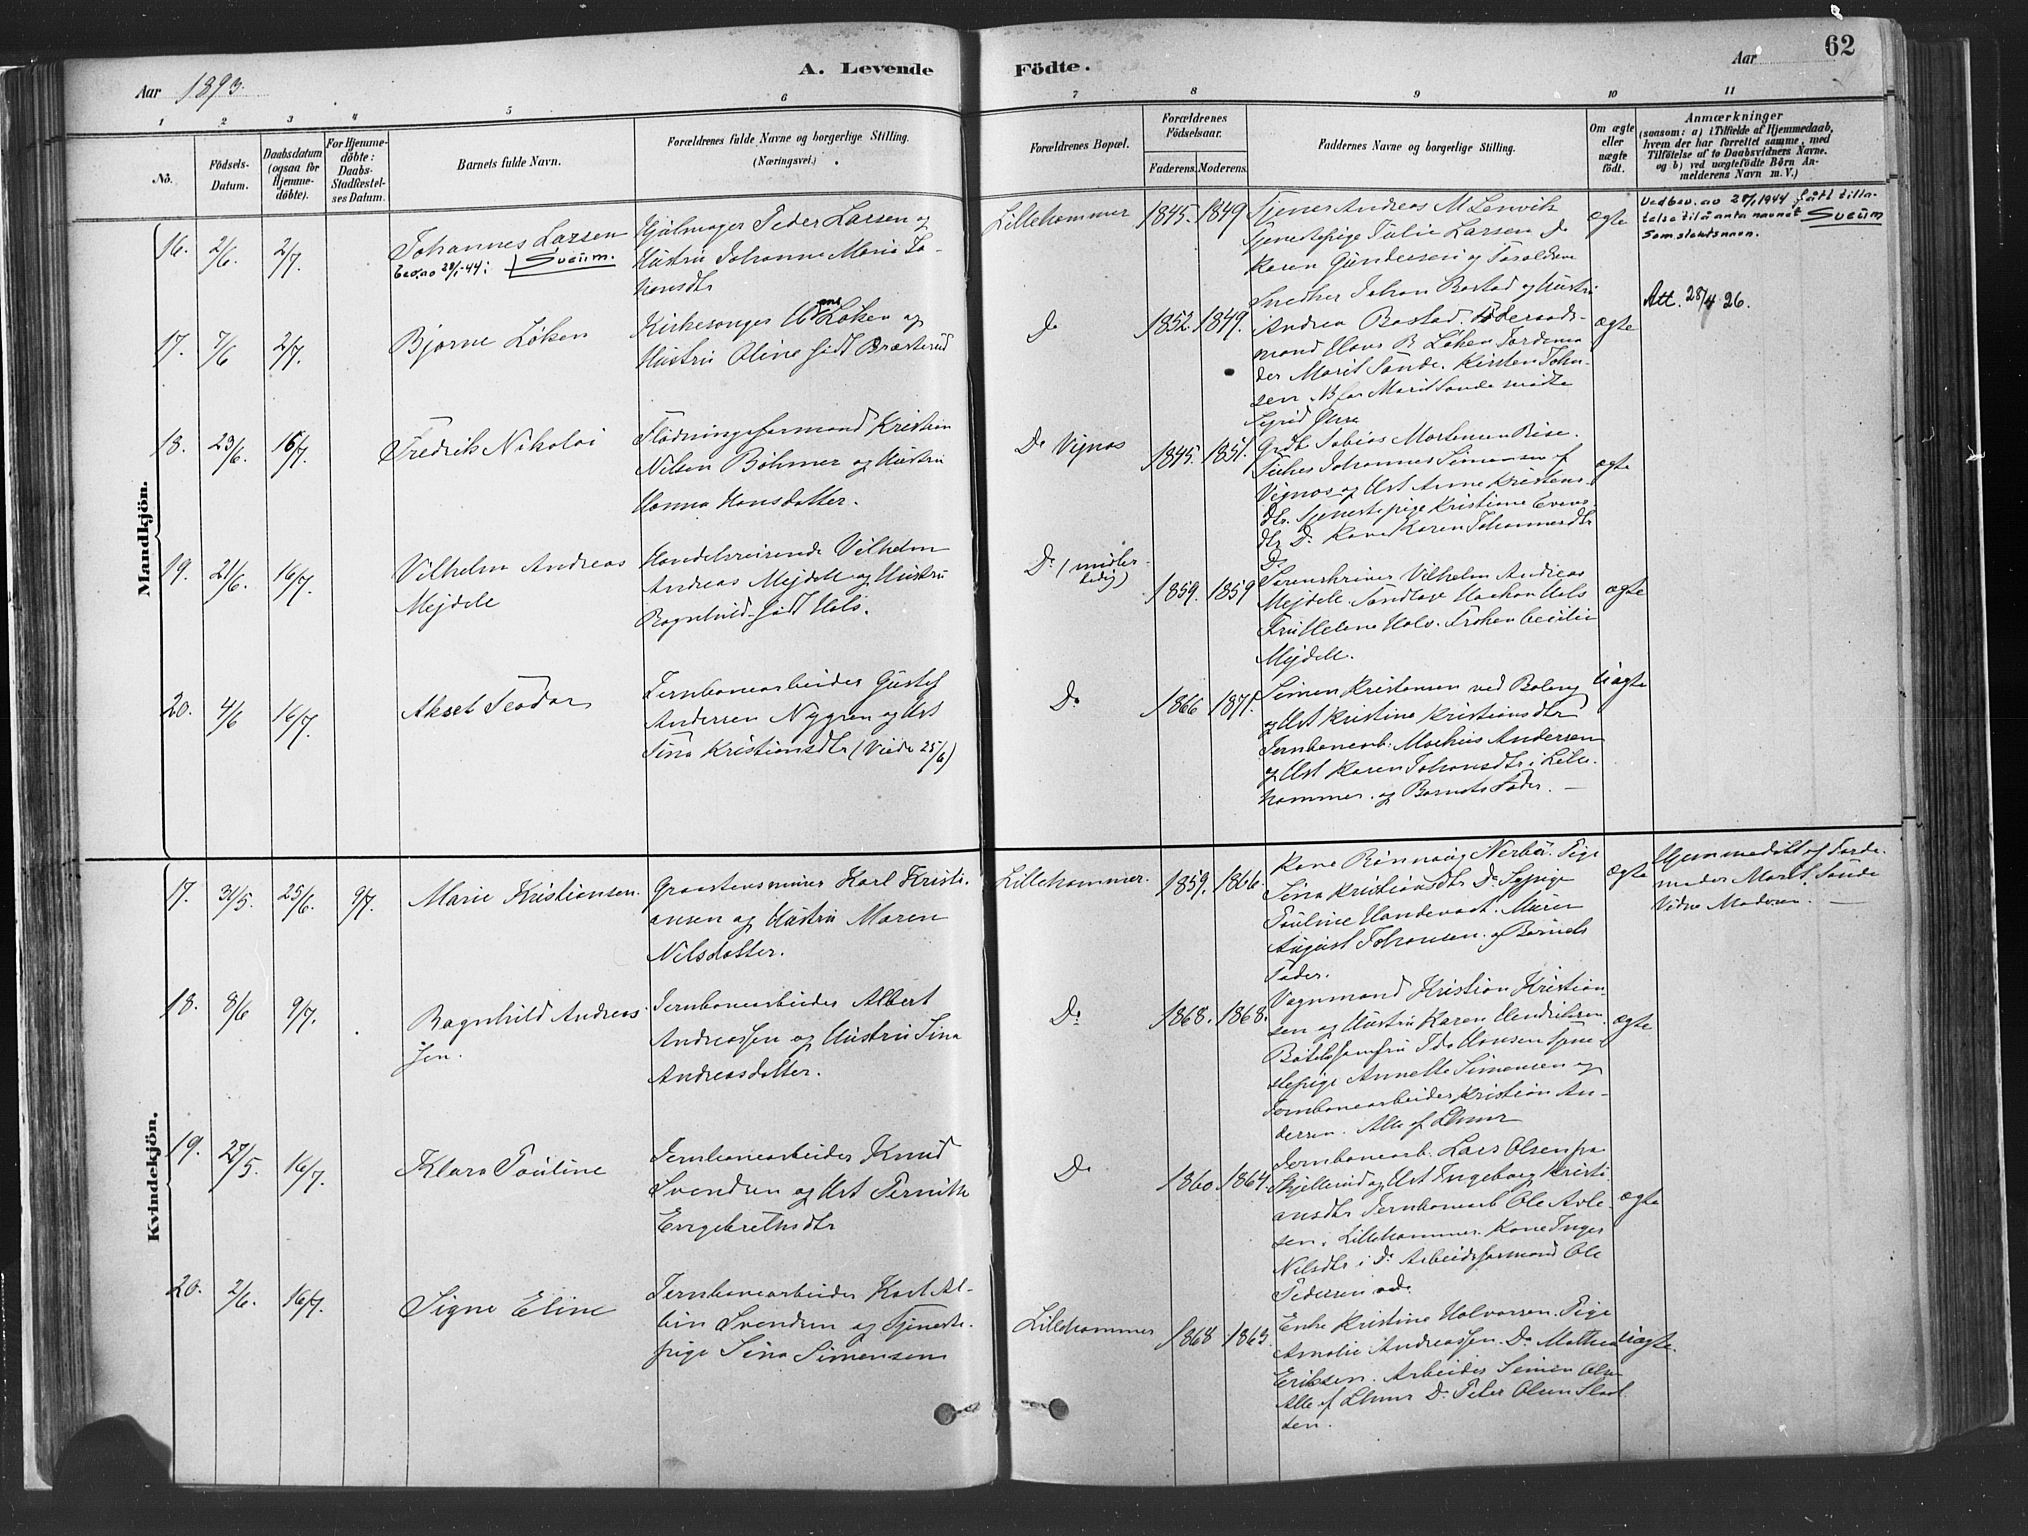 Aar 1893.
A. Levende
Födte.
Aar
62
1
2
3
4
5
6
7
8
9
10
11
No.
Födsels-
Datum.
Daabsdatum
(ogsaa för
Hjemme-
döbte).
For Hjemme-
döbte:
Daabs-
Stadfæstel-
ses Datum.
Barnets fulde Navn.
Forældrenes fulde Navne og borgerlige Stilling.
(Næringsvei.)
Forældrenes Bopæl.
Forældrenes
Födselsaar.
Faderens. Moderens.
Faddernes Navne og borgerlige Stilling.
Om ægte
eller
uægte
födt.
Anmærkninger
(saasom: a) i Tilfælde af Hjemmedaab,
hvem der har forrettet samme, med
Tilföielse af to Daabsvidners Navne.
og b) ved uægtefödte Börn An-
melderens Navn m. V.)
Mandkjön.
16. 2/6. 2/7.
Johannes Larsen
Bev. av 28/1-44: Sveum.
Hjulmager Peder Larsen og
Hustru Johanne Marie Jo-
hansdtr
Lillehammer 1845. 1849
Tjener Andreas M Lenvik
Tjenestepige Julie Larsen Do
Karen Gundersen og
ægte
Vedbev. av 28/1 1944 fått tilla-
telse til å anta navnet Sveum
som slektsnavn.
17. 7/6 2/7.
Bjarne Løken
Kirkesanger Løken og
Hustru Oline født Bræsterud
Do 1852. 1849.
Snedker Johan Bastad og Hustru
Andrea Bastad.
mand Hans B Løken Jordemo-
der Maret Sande. Kirsten Johan-
sen. Marit Sande mødte
Sigrid
ægte
Att. 28/4 26.
18. 23/6. 16/7.
Fredrik Nikolai
Flødningsformand Kristian
Nilsen Böhmer og Hustru
Hanna Hansdatter.
Do Vignes 1845. 1851.
Grdb. Tobias Mortensen Rise.
Johannes Simensen af
Vignes og Hst Anne Kristens-
dtr. Tjenestepige Kristiane Evens-
dtr Do Karen Johannesdtr
Do
ægte
19. 21/6. 16/7.
Vilhelm Andreas
Mejdell
Handelsreisende Vilhelm
Andreas Mejdell og Hustru
Ragnhild født Hals.
Do (midler-
tidig) 1859. 1859
Sorenskriver Vilhelm Andreas
Mejdell. Haakon Hals
Fru Helene Hals. Frøken Cecilie
Mejdell.
ægte
20. 4/6 16/7.
Aksel Teodor
Jernbanearbeider Gustaf
Andersen Nygren og Hst
Sina Kristiansdtr (Viede 25/6)
Do 1866 1871.
Simen Kristiansen ved Balberg
og Hst Kristine Kristiansdtr
Jernbanearb. Mathias Andersen
og Hst Karen Johansdtr i Lille-
hammer. og Barnets Fader. —
Uægte
Kvindekjön.
17. 31/5. 25/6. 9/7.
Marie Kristiansen
Graastensmurer Karl Kristi-
ansen og Hustru Maren
Nilsdatter.
Lillehammer. 1859. 1866.
Kone Rønnaug Nerbø. Pige
Sina Kristiansdtr Do
Pauline Murer
August Johansen. og Barnets
Fader.
ægte
Hjemmedöbt af Jorde-
moder Maret Sande
Vidne Moderen. —
18. 8/6 9/7.
Ragnhild Andreas-
sen.
Jernbanearbeider Albert
Andreassen og Hustru Sina
Andreasdatter.
Do 1868. 1868.
Vognmand Kristian Kristian-
sen og Hustru Karen Hendriksen
Ida Hansen Tjene-
stepige Annette Simensen og
Jernbanearbeider Kristian An-
dersen. Alle af Lhmr
ægte
19. 27/5. 16/7.
Klara Pauline
Jernbanearbeider Knud
Svendsen og Hst Pernille
Engebretsdtr
Do 1860. 1864.
Jernbanearb. Lars Olsen fra
Skjellerud og Hst Ingeborg Kristi-
ansdtr Jernbanearb Ole
sen. Lillehammer. Kone Inger
Nilsdtr i Do Arbeidsformand Ole
Pedersen
ægte
20. 2/6. 16/7.
Signe Eline
Jernbanearbeider Karl Al-
bin Svendsen og Tjeneste-
pige Sina Simensen
Lillehammer 1868 1863.
Enke Kristine Halvorsen. Pige
Amalie Andreassen. Do Mathea
Eriksen. Arbeider Simen Olsen
Alle af Lhmr Do Peter Olsen
den.
uægte.